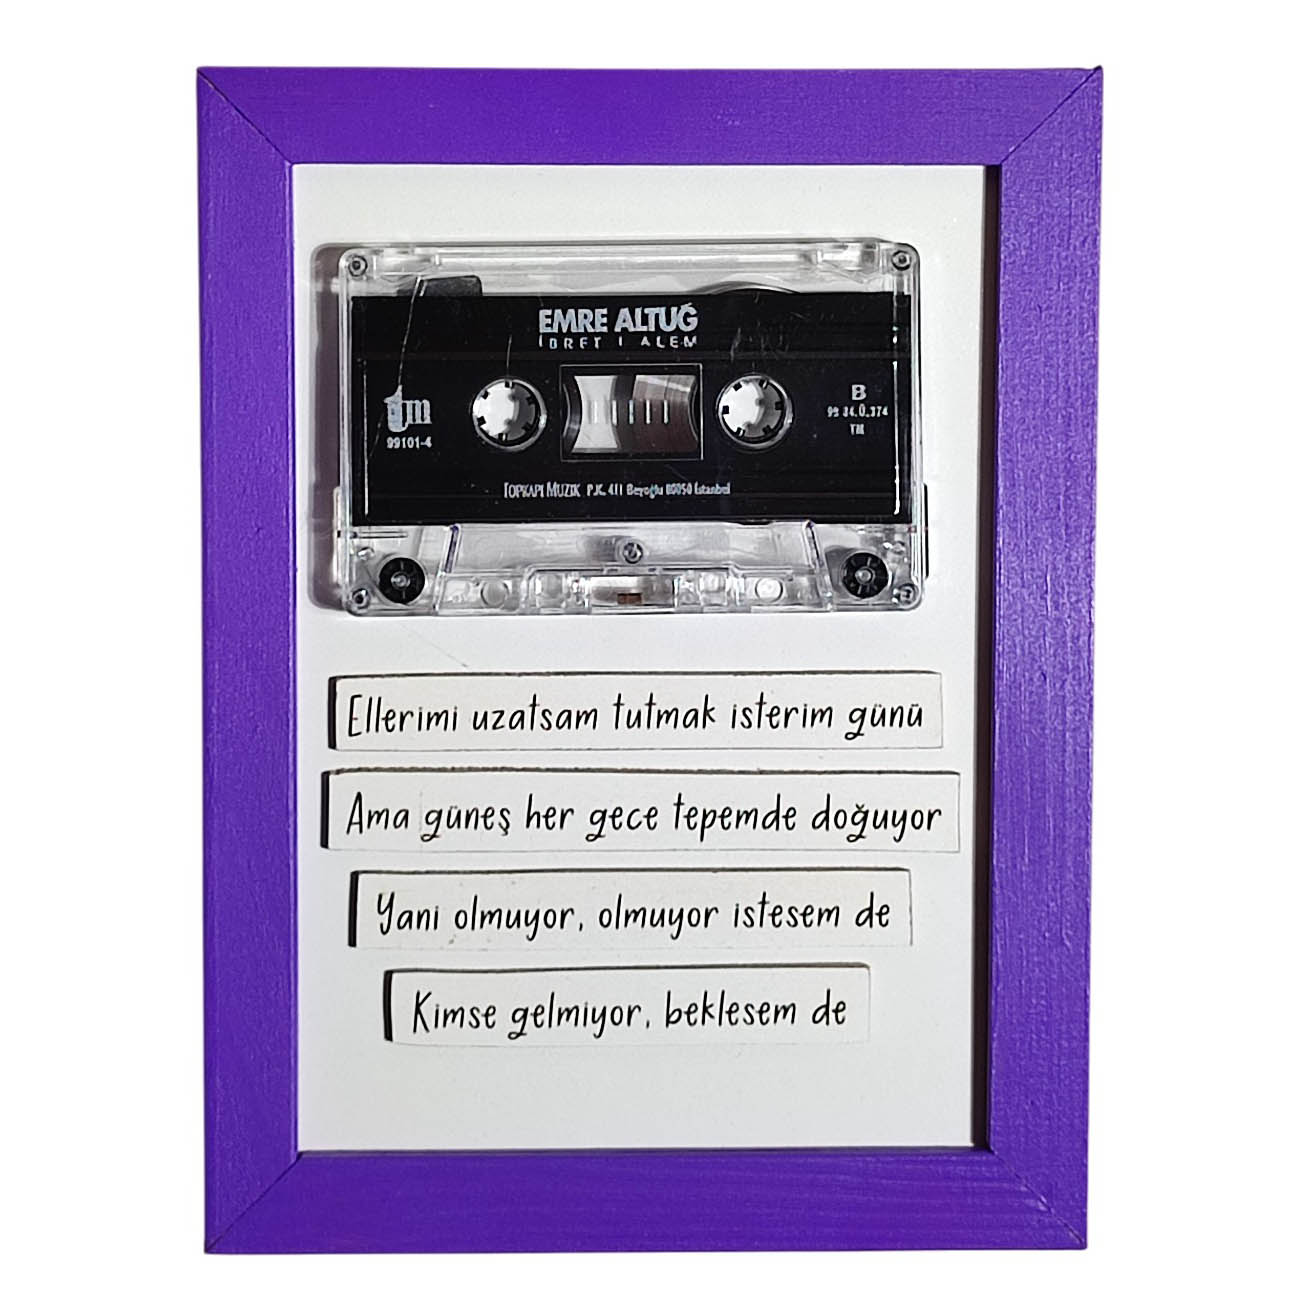 EMRE ALTUĞ
İBRET İ ALEM
tm
99101-4
B
99 34.Ü.374
TM
TOPKAPI MUZİK P.K. 411 Beyoğlu 80050 İstanbul
Ellerimi uzatsam tutmak isterim günü
Ama güneş her gece tepemde doğuyor
Yani olmuyor, olmuyor istesem de
Kimse gelmiyor, beklesem de